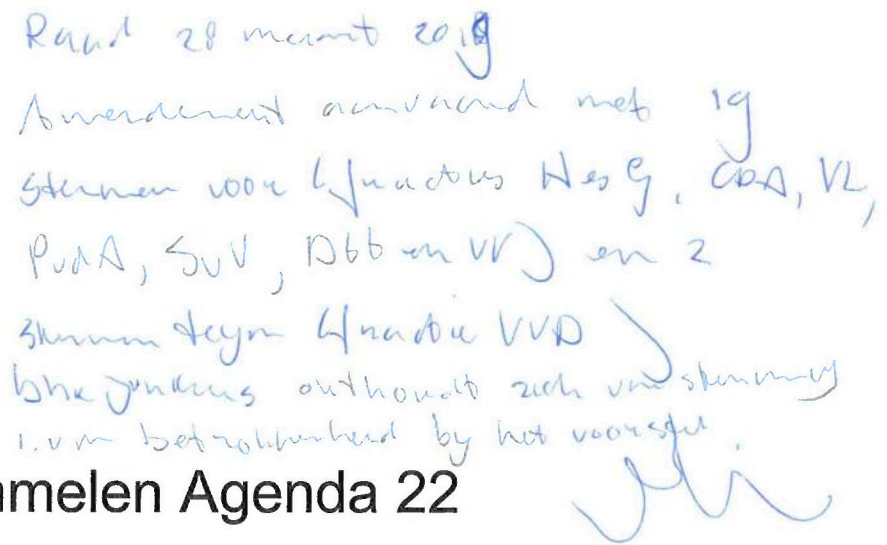 Raad 28 maart 2018
Amendement aanvaard met 19
stemmen voor (fracties HesG, CDA, VL,
PvdA, SvV, D66 en VV) en 2
stemmen tegen (fractie VVD)
dhr Junkens onthoudt zich van stemming
i.v.m betrokkenheid bij het voorstel
mmelen Agenda 22